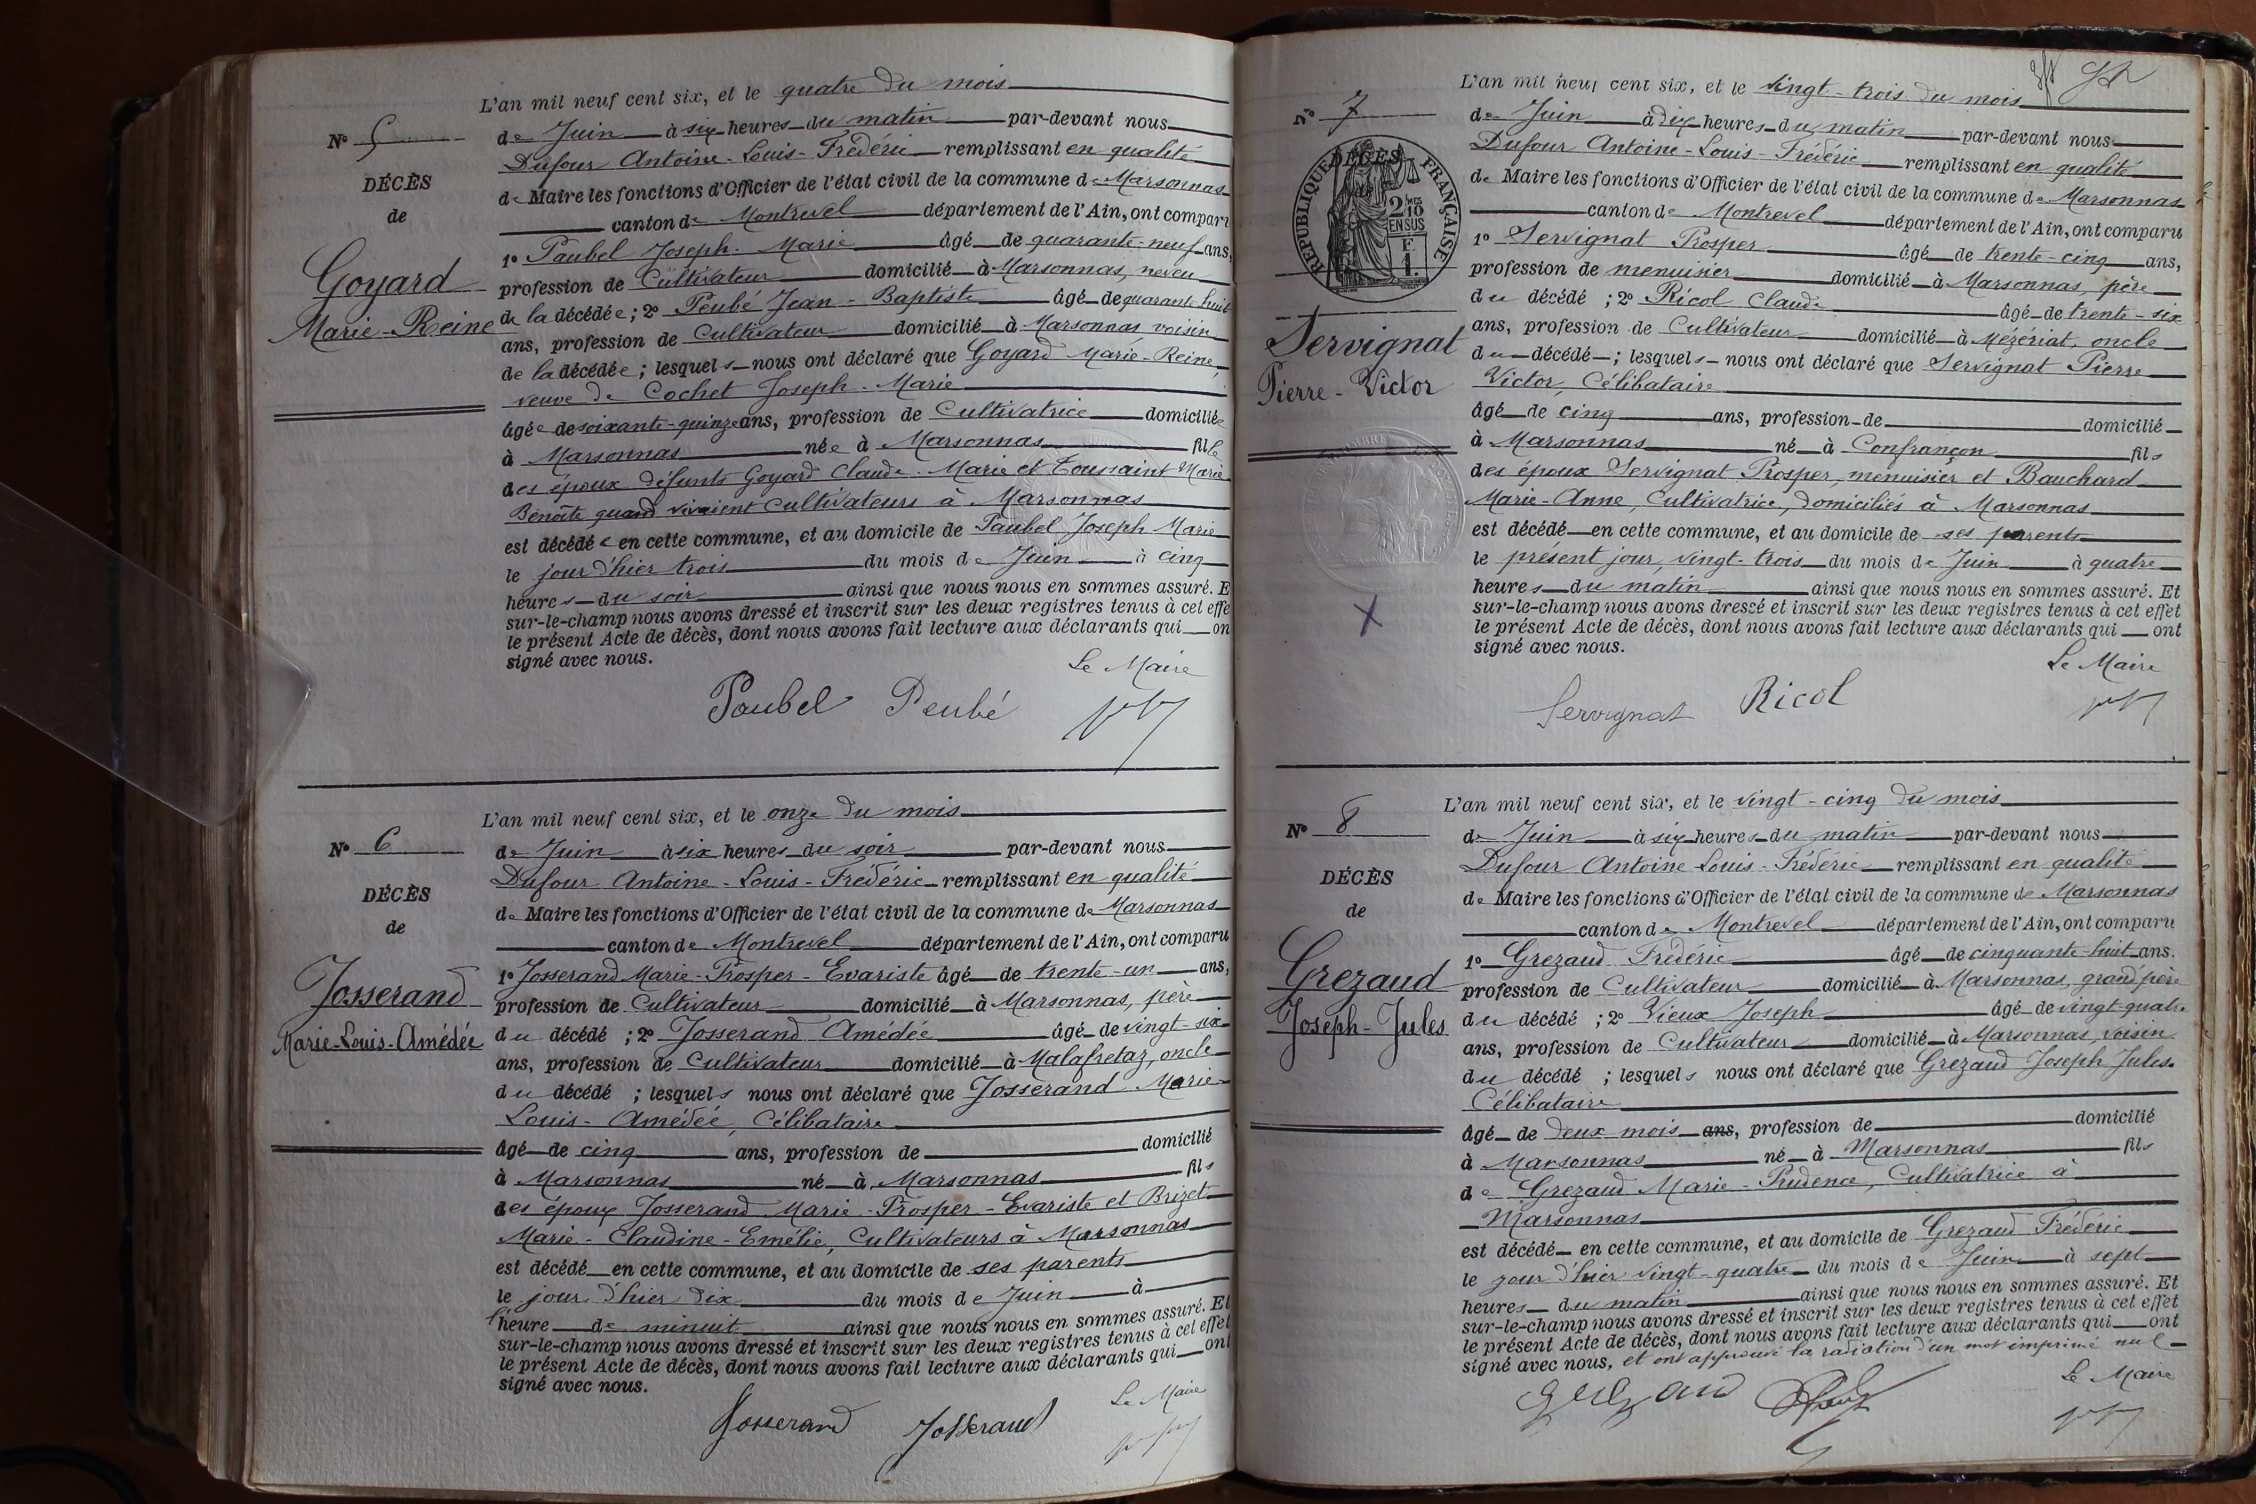 L'an mil neuf cent six, et le quatre du mois
No 5
de Juin à six heures du matin par-devant nous
Dufour Antoine-Louis-Frédéric remplissant en qualité
DÉCÈS
de Maire les fonctions d'Officier de l'état civil de la commune de Marsonnas
de
canton de Montrevel département de l'Ain, ont comparu
1o Paubel Joseph-Marie âgé de quarante-neuf ans,
Goyard
profession de Cultivateur domicilié à Marsonnas, neveu
Marie-Reine
de la décédée; 2o Peubé Jean-Baptiste âgé de quarante huit
ans, profession de Cultivateur domicilié à Marsonnas voisin
de la décédée; lesquels nous ont déclaré que Goyard Marie-Reine,
veuve de Cochet Joseph-Marie
âgée de soixante-quinze ans, profession de Cultivatrice domiciliée
à Marsonnas née à Marsonnas fille
des époux défunts Goyard Claude-Marie et Toussaint Marie
Benoîte quand vivaient cultivateurs à Marsonnas
est décédée en cette commune, et au domicile de Paubel Joseph Marie
le jour d'hier trois du mois de Juin à cinq
heures du soir ainsi que nous nous en sommes assuré. E
sur-le-champ nous avons dressé et inscrit sur les deux registres tenus à cet effe
le présent Acte de décès, dont nous avons fait lecture aux déclarants qui on
signé avec nous.
Le Maire
Paubel Peubé
L'an mil neuf cent six, et le onze du mois
No 6
de Juin à six heures du soir par-devant nous
Dufour Antoine-Louis-Frédéric remplissant en qualité
DÉCÈS
de Maire les fonctions d'Officier de l'état civil de la commune de Marsonnas
de
canton de Montrevel département de l'Ain, ont comparu
1o Josserand Marie-Prosper-Evariste âgé de trente-un ans,
Josserand
profession de Cultivateur domicilié à Marsonnas, père
Marie-Louis-Amédée
du décédé; 2o Josserand Amédée âgé de vingt-six
ans, profession de Cultivateur domicilié à Malafretaz, oncle
du décédé; lesquels nous ont déclaré que Josserand Marie
Louis-Amédée, Célibataire
âgé de cinq ans, profession de domicilié
à Marsonnas né à Marsonnas fils
des époux Josserand Marie-Prosper-Evariste et Brizet
Marie-Claudine-Emélie, Cultivateurs à Marsonnas
est décédé en cette commune, et au domicile de ses parents
le jour d'hier dix du mois de Juin à
l'heure de minuit ainsi que nous nous en sommes assuré. Et
sur-le-champ nous avons dressé et inscrit sur les deux registres tenus à cet effet
le présent Acte de décès, dont nous avons fait lecture aux déclarants qui ont
signé avec nous.
Le Maire
Josserand Josserand
L'an mil neuf cent six, et le vingt-trois du mois
No 7
de Juin à dix heures du matin par-devant nous
Dufour Antoine-Louis-Frédéric remplissant en qualité
RÉPUBLIQUE FRANÇAISE
DÉCÈS
2/10
EN SUS
F
1.
de Maire les fonctions d'Officier de l'état civil de la commune de Marsonnas
canton de Montrevel département de l'Ain, ont comparu
1o Servignat Prosper âgé de trente-cinq ans,
profession de menuisier domicilié à Marsonnas, père
du décédé; 2o Ricol Claude âgé de trente-six
Servignat
ans, profession de Cultivateur domicilié à Mézériat, oncle
du décédé; lesquels nous ont déclaré que Servignat Pierre
Pierre-Victor
Victor, Célibataire
âgé de cinq ans, profession de domicilié
à Marsonnas né à Confrançon fils
des époux Servignat Prosper, menuisier et Bauchard
Marie-Anne, Cultivatrice, domiciliés à Marsonnas
est décédé en cette commune, et au domicile de ses parents
le présent jour, vingt-trois du mois de Juin à quatre
heures du matin ainsi que nous nous en sommes assuré. Et
sur-le-champ nous avons dressé et inscrit sur les deux registres tenus à cet effet
le présent Acte de décès, dont nous avons fait lecture aux déclarants qui ont
signé avec nous.
Le Maire
Servignat Ricol
L'an mil neuf cent six, et le vingt-cinq du mois
No 8
de Juin à six heures du matin par-devant nous
Dufour Antoine-Louis-Frédéric remplissant en qualité
DÉCÈS
de Maire les fonctions d'Officier de l'état civil de la commune de Marsonnas
de
canton de Montrevel département de l'Ain, ont comparu
1o Grezaud Frédéric âgé de cinquante-huit ans.
Grezaud
profession de Cultivateur domicilié à Marsonnas, grand'père
Joseph-Jules
du décédé; 2o Vieux Joseph âgé de vingt-quatre
ans, profession de Cultivateur domicilié à Marsonnas, voisin
du décédé; lesquels nous ont déclaré que Grezaud Joseph Jules
Célibataire
âgé de deux mois ans, profession de domicilié
à Marsonnas né à Marsonnas fils
de Grezaud Marie-Prudence, Cultivatrice à
Marsonnas
est décédé en cette commune, et au domicile de Grezaud Frédéric
le jour d'hier vingt-quatre du mois de Juin à sept
heures du matin ainsi que nous nous en sommes assuré. Et
sur-le-champ nous avons dressé et inscrit sur les deux registres tenus à cet effet
le présent Acte de décès, dont nous avons fait lecture aux déclarants qui ont
signé avec nous, et ont approuvé la radiation d'un mot imprimé nul
Le Maire
Grezaud